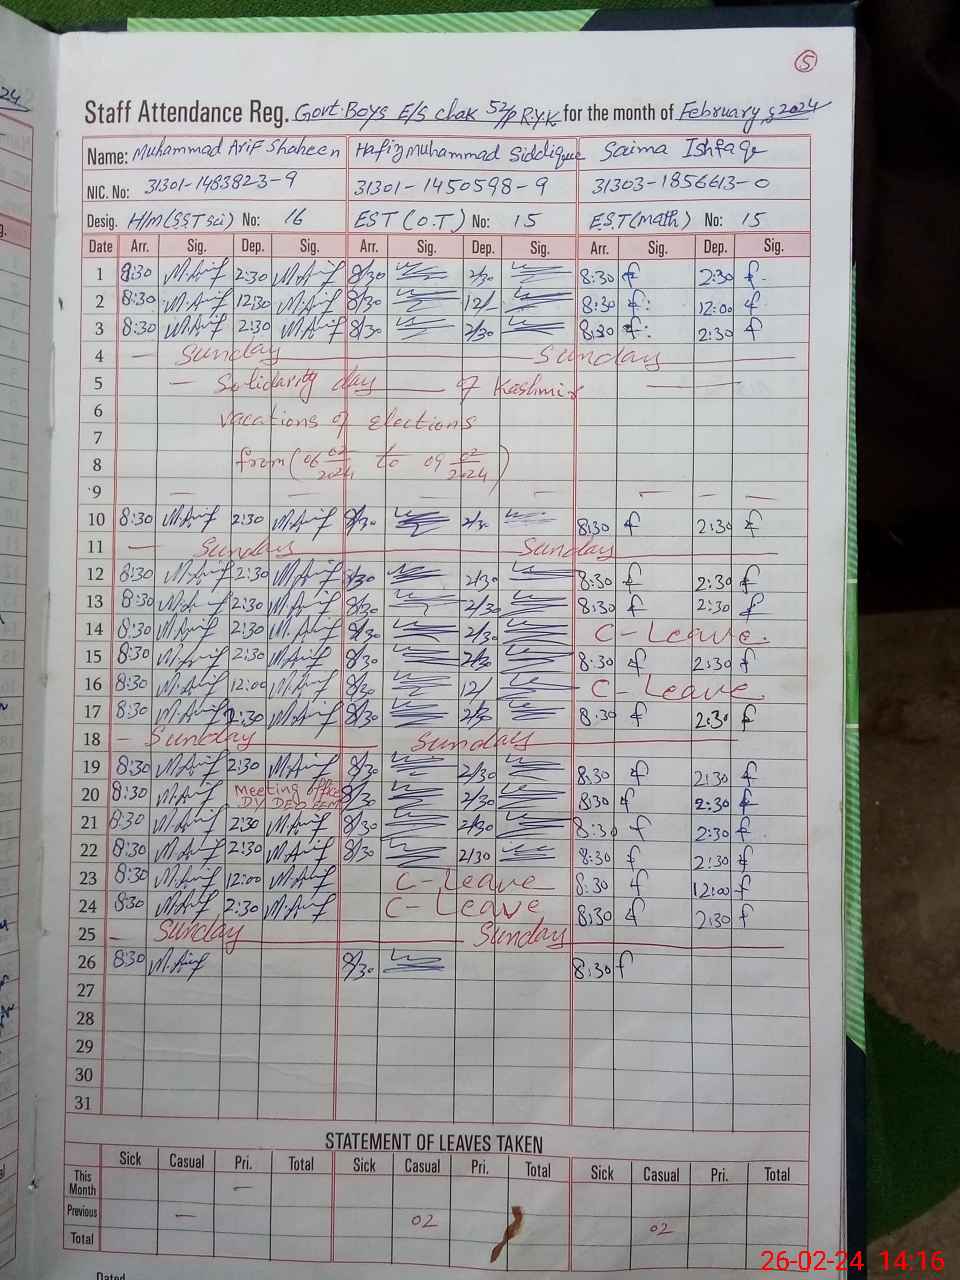 5
Staff Attendance Reg. Govt. Boys E/S chak 52/P R.Y.K for the month of February, 2024
Name: Muhammad Arif Shaheen Hafiz Muhammad Siddique Saima Ishfaq
NIC. No: 31301-1483823-9 31301-1450598-9 31303-1856613-0
Desig. H/M (S.S.T sci) No: 16 EST (O.T) No: 15 E.S.T (math) No: 15
Date Arr. Sig. Dep. Sig. Arr. Sig. Dep. Sig. Arr. Sig. Dep. Sig.
1 8:30 M.Arif 2:30 M.Arif 8/30 2/30 8:30 f 2:30 f
2 8:30 M.Arif 12:30 M.Arif 8/30 12/- 8:30 f 12:00 f
3 8:30 M.Arif 2:30 M.Arif 8/30 2/30 8:30 f 2:30 f
4 — Sunday — Sunday —
5 — Solidarity day — of Kashmir —
6 Vacations of elections
7
8 from (06 02/2024 to 09 02/2024)
9 — — — — — — —
10 8:30 M.Arif 2:30 M.Arif 8/30 2/30 8:30 f 2:30 f
11 — Sunday — Sunday —
12 8:30 M.Arif 2:30 M.Arif 8/30 2/30 8:30 f 2:30 f
13 8:30 M.Arif 2:30 M.Arif 8/30 2/30 8:30 f 2:30 f
14 8:30 M.Arif 2:30 M.Arif 8/30 2/30 C-Leave.
15 8:30 M.Arif 2:30 M.Arif 8/30 2/30 8:30 f 2:30 f
16 8:30 M.Arif 12:00 M.Arif 8/30 12/ C-Leave.
17 8:30 M.Arif 2:30 M.Arif 8/30 2/30 8:30 f 2:30 f
18 — Sunday — Sunday —
19 8:30 M.Arif 2:30 M.Arif 8/30 2/30 8:30 f 2:30 f
20 8:30 M.Arif Meeting office DY DEO 8/30 2/30 8:30 f 2:30 f
21 8:30 M.Arif 2:30 M.Arif 8/30 2/30 8:30 f 2:30 f
22 8:30 M.Arif 2:30 M.Arif 8/30 2/30 8:30 f 2:30 f
23 8:30 M.Arif 12:00 M.Arif C-Leave 8:30 f 12:00 f
24 8:30 M.Arif 2:30 M.Arif C-Leave 8:30 f 2:30 f
25 — Sunday — Sunday —
26 8:30 M.Arif 8/30 8:30 f
27
28
29
30
31
STATEMENT OF LEAVES TAKEN
Sick Casual Pri. Total Sick Casual Pri. Total Sick Casual Pri. Total
This Month —
Previous — 02 02
Total
Dated
26-02-24 14:16